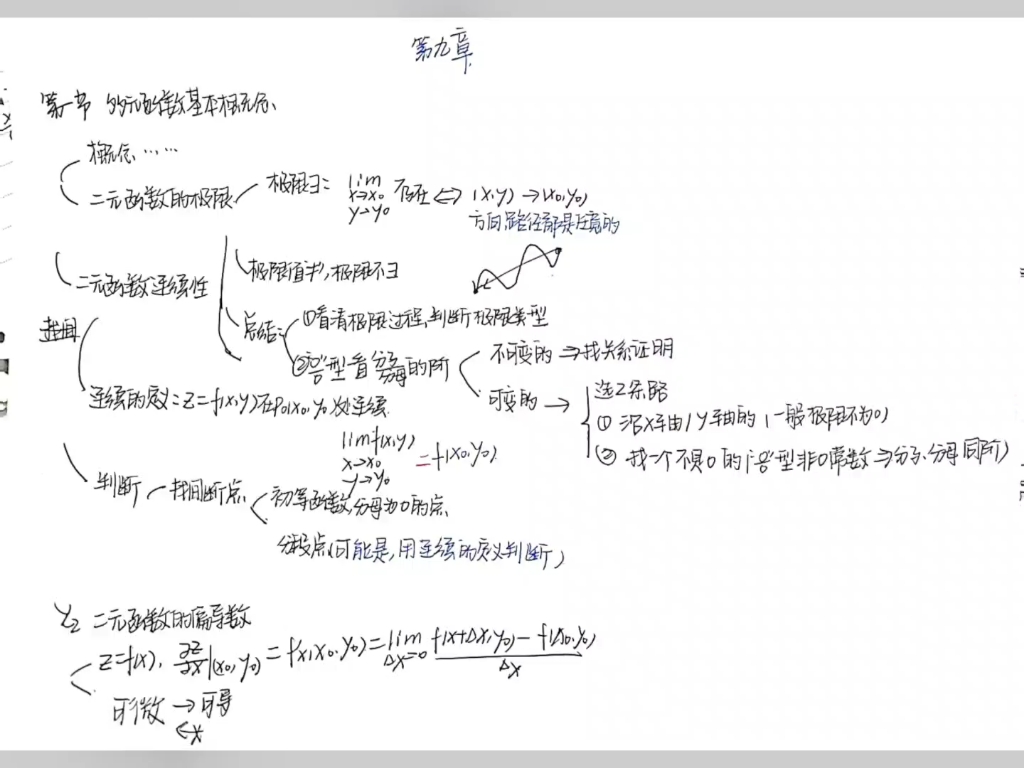 第九章
第一节 多元函数基本概念
概念……
二元函数的极限
极限∃: lim x→x₀ y→y₀ 存在 ⇔ (x,y)→(x₀,y₀)
方向,路径都是任意的
极限值≠,极限不∃
二元函数连续性
总结:
①看清极限过程,判断极限类型
②"0/0"型看分子分母的阶
不可变的 ⇒找关系证明
可变的 →
选2条路
① 沿x轴/y轴的(一般极限不为0)
② 找一个不是0的("0/0"型非0常数⇒分子、分母同阶)
连续的定义:z=f(x,y)在P₀(x₀,y₀)处连续
lim f(x,y) x→x₀ y→y₀ = f(x₀,y₀)
判断
找间断点
初等函数,分母为0的点
分段点(可能是,用连续的定义判断)
Y₂ 二元函数的偏导数
z=f(x), ∂z/∂x|(x₀,y₀) = fx(x₀,y₀) = lim Δx=0 f(x+Δx,y₀)-f(x₀,y₀)/Δx
可微 → 可导
←x